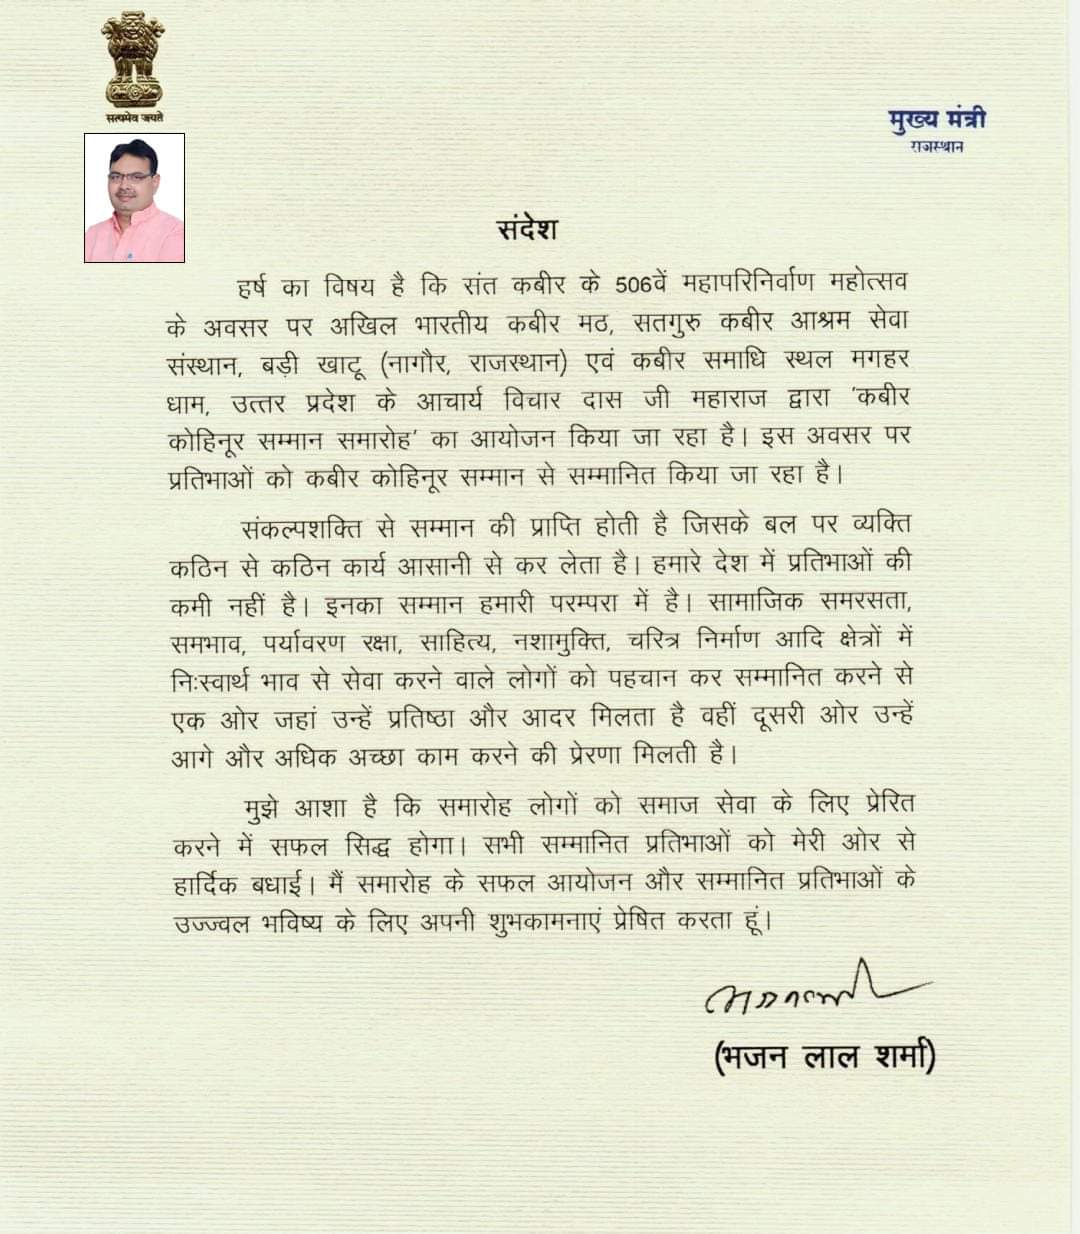 सत्यमेव जयते
मुख्य मंत्री
राजस्थान
संदेश
हर्ष का विषय है कि संत कबीर के 506वें महापरिनिर्वाण महोत्सव
के अवसर पर अखिल भारतीय कबीर मठ, सतगुरु कबीर आश्रम सेवा
संस्थान, बड़ी खाटू (नागौर, राजस्थान) एवं कबीर समाधि स्थल मगहर
धाम, उत्तर प्रदेश के आचार्य विचार दास जी महाराज द्वारा 'कबीर
कोहिनूर सम्मान समारोह' का आयोजन किया जा रहा है। इस अवसर पर
प्रतिभाओं को कबीर कोहिनूर सम्मान से सम्मानित किया जा रहा है।
संकल्पशक्ति से सम्मान की प्राप्ति होती है जिसके बल पर व्यक्ति
कठिन से कठिन कार्य आसानी से कर लेता है। हमारे देश में प्रतिभाओं की
कमी नहीं है। इनका सम्मान हमारी परम्परा में है। सामाजिक समरसता,
समभाव, पर्यावरण रक्षा, साहित्य, नशामुक्ति, चरित्र निर्माण आदि क्षेत्रों में
निःस्वार्थ भाव से सेवा करने वाले लोगों को पहचान कर सम्मानित करने से
एक ओर जहां उन्हें प्रतिष्ठा और आदर मिलता है वहीं दूसरी ओर उन्हें
आगे और अधिक अच्छा काम करने की प्रेरणा मिलती है।
मुझे आशा है कि समारोह लोगों को समाज सेवा के लिए प्रेरित
करने में सफल सिद्ध होगा। सभी सम्मानित प्रतिभाओं को मेरी ओर से
हार्दिक बधाई। मैं समारोह के सफल आयोजन और सम्मानित प्रतिभाओं के
उज्ज्वल भविष्य के लिए अपनी शुभकामनाएं प्रेषित करता हूं।
(भजन लाल शर्मा)